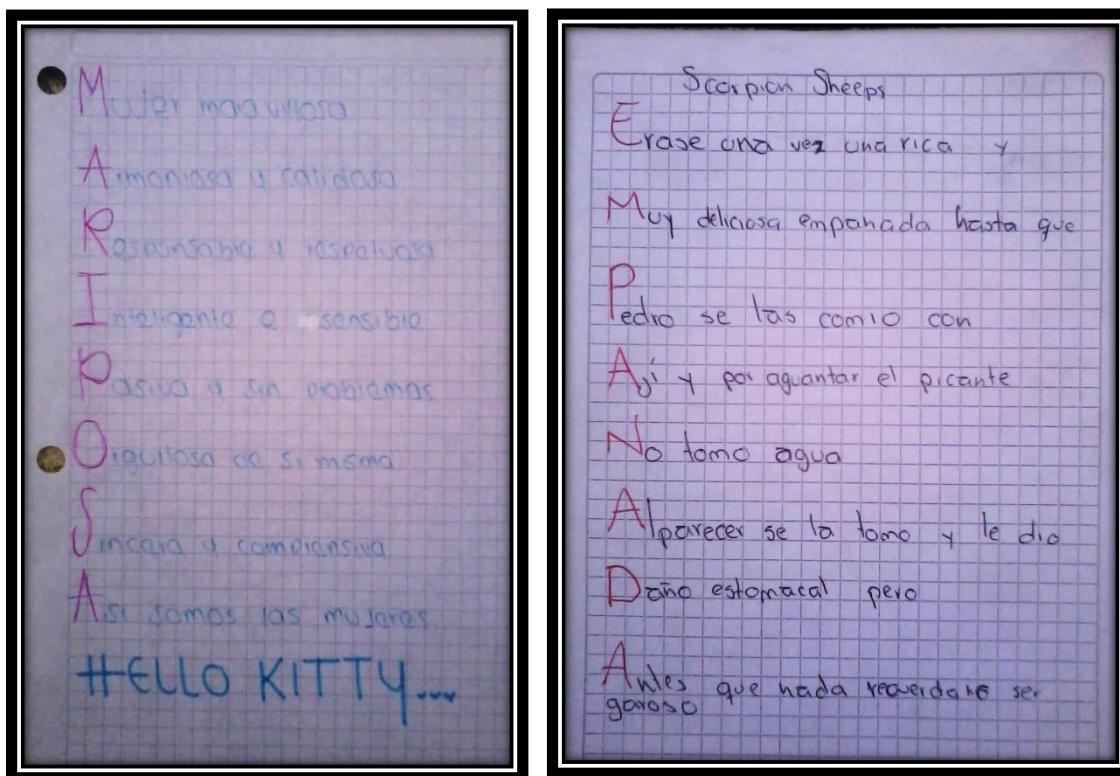 Mujer maravillosa
Armoniosa y calidosa
Responsable y respetuosa
Inteligente e sensible
Pasiva y sin problemas
Orgullosa de si misma
Sincera y comprensiva
Asi somos las mujeres
HELLO KITTY...
Scorpion Sheeps
Erase una vez una rica y
Muy deliciosa empanada hasta que
Pedro se las comio con
Ají y por aguantar el picante
No tomo agua
Al parecer se la tomo y le dio
Daño estomacal pero
Antes que nada recuerda no ser
garoso